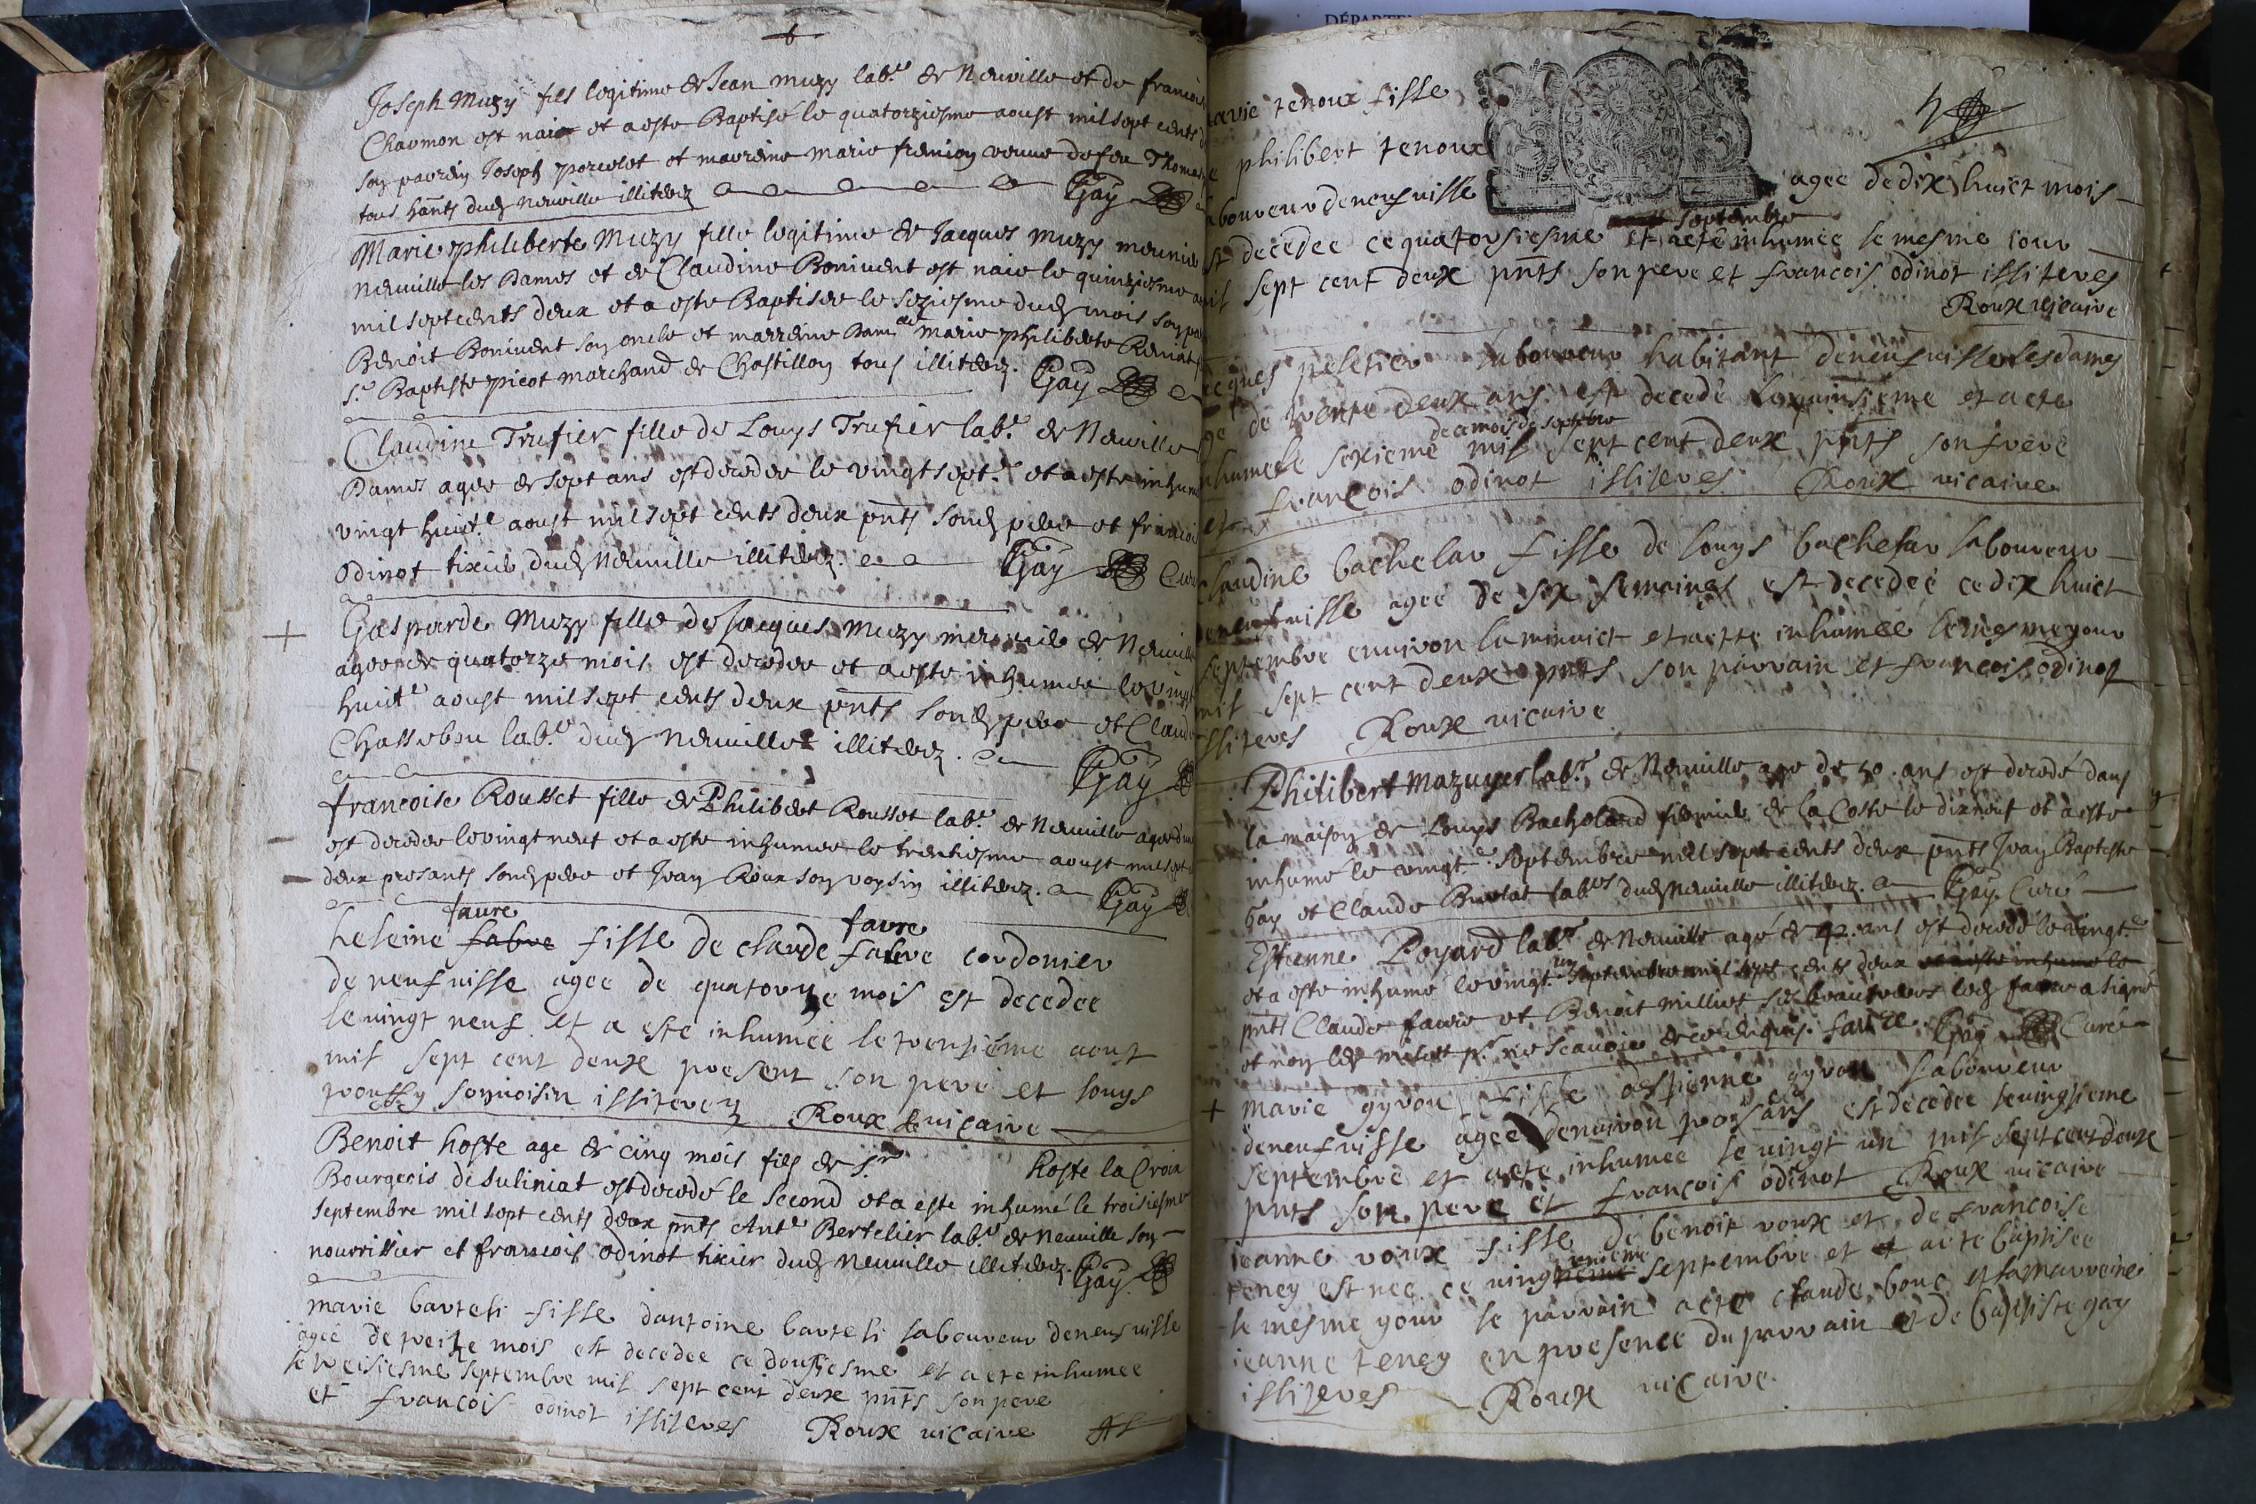 Joseph Muzy fils legitime de Jean muzy lab.r de Neuville et de francois
Chaumon est naie et a este Baptisé le quatorziesme aoust mil sept cents
son parrein Joseph porcelot et marreine marie fremion veuve de feu Thomas
tous hants dud Neuville illiterez Gay
Marie philiberte Muzy fille legitime de Jacques muzy meunier
Neuville les Dames et de Claudine Bonivent est naie le quinziesme
mil sept cents deux et a este Baptisée le seziesme dud mois son par
Benoit Bonivent son oncle et marreine Dam.lle marie philiberte
s.r Baptiste picot marchand de Chastillon tous illiterez. Gay
Claudine Trufier fille de Louys Trufier lab.r de Neuville
Dames agee de sept ans est decedee le vingt sept.e et a este inhum
vingt huit.e aoust mil sept cents deux pnts sond pere et francois
odinot tixier dud Neuville illiterez. Gay Cur
Gasparde Muzy fille de Jacques Muzy meunier de Neuville
agee de quatorze mois est decedee et a este inhumee le vingt
huit.e aoust mil sept cents deux pnts sond pere et Claud
Chassebou lab.r dud Neuville illiterez. Gay
francoise Rousset fille de Philibert Rousset lab.r de Neuville agee d
est decedee le vingt neuf et a este inhumee le trentiesme aoust mil sept
deux presants sond pere et Jean Roux son voysin illiterez. Gay
faure faure
heleine fabre fille de claude fabre cordonier
de neufville agee de quatorze mois est decedee
le vingt neuf et a este inhumée le trensiéme aout
mil sept cent deux present son pere et louys
son voisin illiterez Roux vicaire
Benoit hoste age de cinq mois fils de s.r hoste la Croix
Bourgeois de suliniat est decedé le second et a este inhumé le troisiesme
septembre mil sept cents deux pnts Ant.e Bertelier lab.r de Neuville son
nourrissier et francois odinot tixier dud Neuville illiterez. Gay
marie barteli fille dantoine barteli laboureur deneufville
agée de treize mois est decedee ce dousiesme et a ete inhumee
le treisiesme septembre mil sept cent deux pnts son pere
et francois odinot illiteres Roux vicaire
marie tenoux fille
philibert tenoux
laboureur deneufville agee de dix huict mois
septembre
est decedee ce quatorsiesme et a eté inhumee le mesme iour
mil sept cent deux pnts son pere et francois odinot illiteres
Roux vicaire
peletier laboureur habitant deneufville les dames
de trente deux ans est decedé le quinsieme et a ete
de ce mois de septebre
inhumé le sexieme mil sept cent deux pnts son frere
et francois odinot illiteres Roux vicaire
claudine bachelar fille de louys bachelar laboureur
deneufville agée de six semaines est decedeé ce dix huict
septembre environ la minuict et a ette inhumée le mesme your
mil sept cent deux pnts son parrain et francois odinot
illiteres Roux vicaire
Philibert Mazuyer lab.r de Neuville age de 50 ans est decedé dans
la maison de Louys Bachelard fermier de la Coste le dixneuf et a este
inhumé le vingt.e septembre mil sept cents deux pnts Jean Baptiste
Gay et Claude lab.rs dud Neuville illiterez. Gay Curé
Estienne Poyard lab.r de Neuville agé de 42 ans est decedé le vingt.e
un
et a este inhumé le vingt septembre mil sept cents deux et a este inhumé le
pnts Claude faure et Benoit milliet ses beaufreres led faure a signé
et non led milliet p.r ne scavoir de ce enquis. faure Gay Curé
marie gyrou fille destienne gyrou laboureur
deneufville agee denviron trois ans est decedee le vingtieme
septembre et a ete inhumee le vingt un mil sept cent deux
pnts son pere et francois odinot Roux vicaire
ieanne roux fille de benoit roux et de francoise
unieme
teney est nee ce vingtieme septembre et a ete baptisee
le mesme your le parrain a ete claude bouc et la marreine
ieanne teney en presence du parrain et de baptiste gay
illiteres Roux vicaire